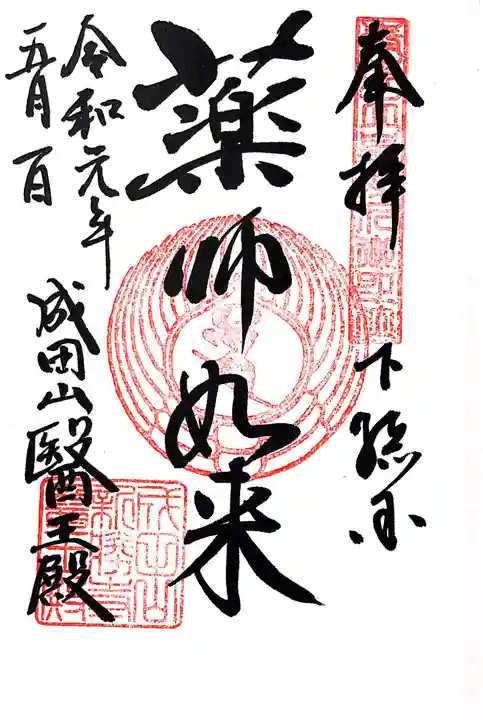 奉拝
下総国
薬師如来
令和元年
五月一日
成田山醫王殿
成田山
新勝寺